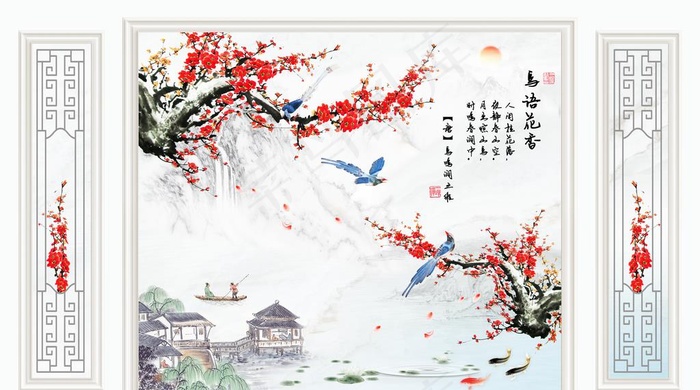 鸟语花香
人闲桂花落
夜静春山空
月出惊山鸟
时鸣春涧中。
【唐】鸟鸣涧王维